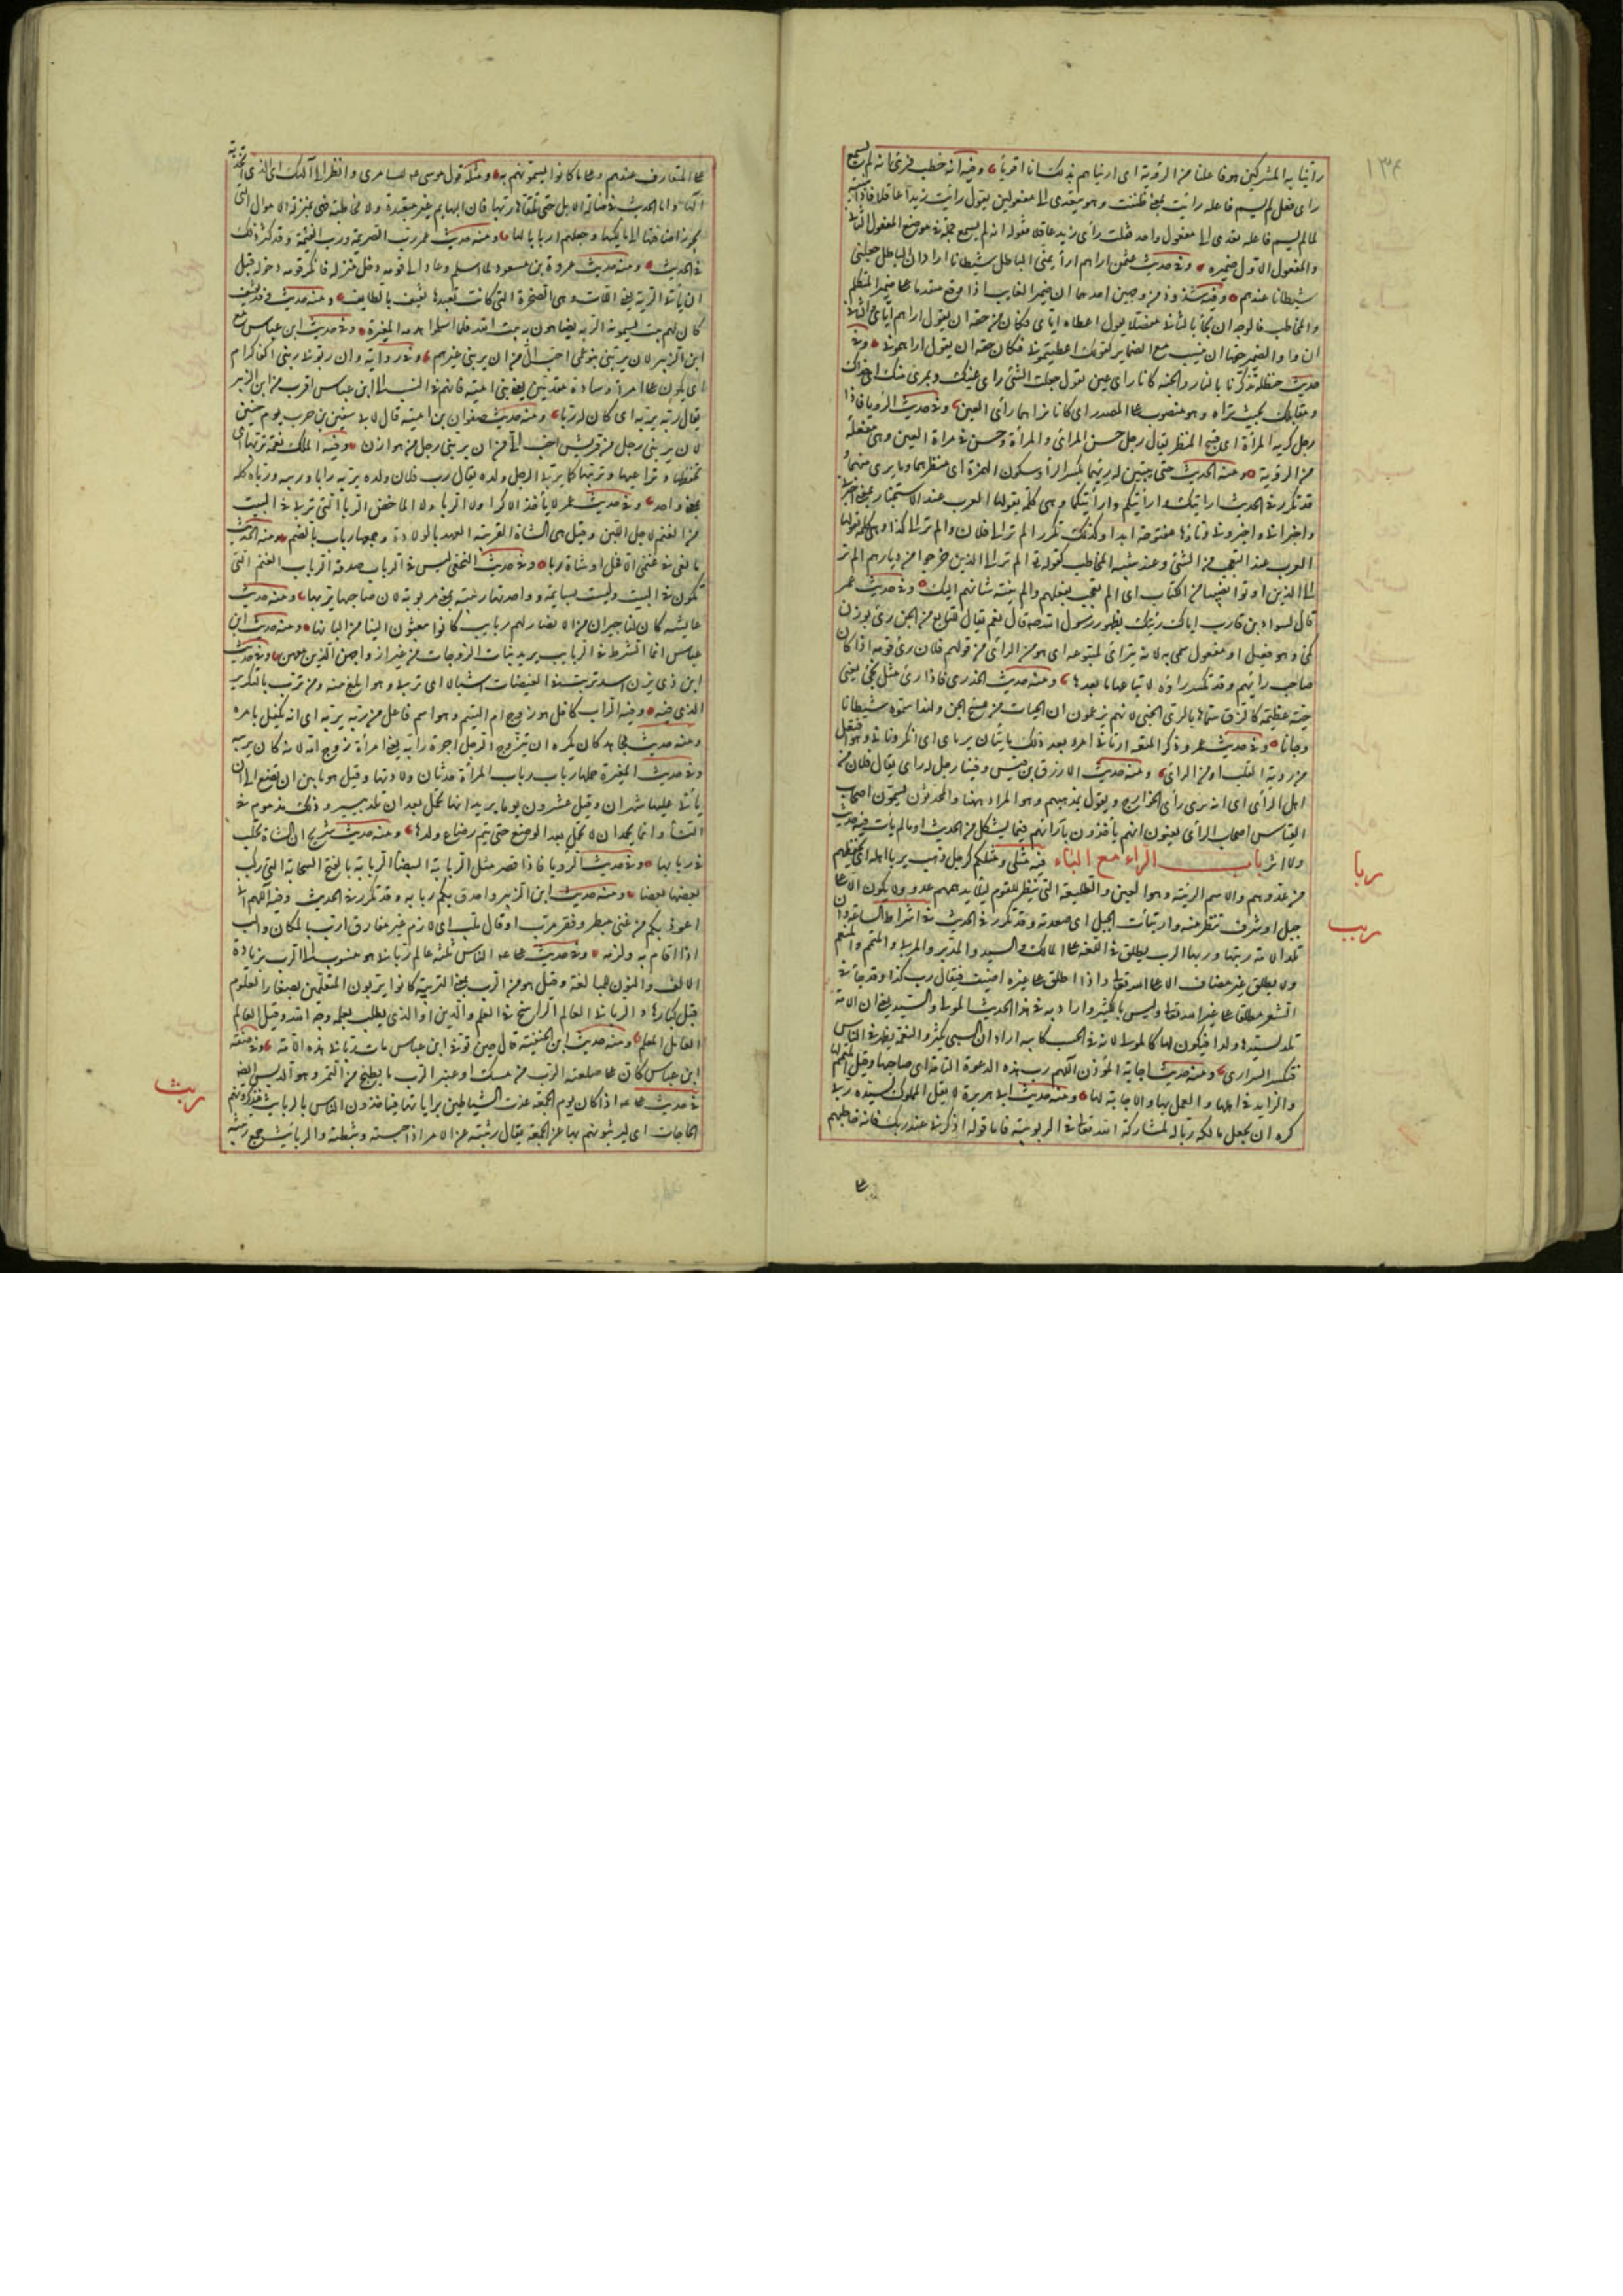 ١٣٤
راينا به المشركين هو فاعلنا من الرؤية اى اريناهم بذلك انا اقوياء وفيه انه خطب فرئ انه لم يسمع
راى فعل لم يسم فاعله رايت بمعنى ظننت وهو يتعدى الى مفعولين يقول رايت زيدا عاقلا فاذا بنيته
لما لم يسم فاعله تعدى الى مفعول واحد فقلت رأى زيد عاقلا فقوله انه لم يسمع جملة فى موضع المفعول الثانى
والمفعول الاول ضميره وفى حديث عثمن اراهم اراهمنى الباطل شيطانا اراد ان الباطل جعلنى
شيطانا عندهم وفيه شذوذ من وجهين احدهما ان ضمير الغايب اذا وقع متقدما على ضمير المتكلم
والمخاطب فالوجه ان يجاء بالثانى منفصلا تقول اعطاه اياى وكان من حقه ان يقول اراهم اياى والثانى
ان واو الضمير حقها ان تثبت مع الضماير كقولك اعطيتمونى فكان حقه ان يقول اراهمونى وفى
حديث حنظلة تذكرنا بالنار والجنة كانا راى عين تقول جعلت الشئ راى عينك وبمرى منك اى حذاك
ومقابلك بحيث تراه وهو منصوب على المصدر اى كانا نراهما رأى العين وفى حديث الرؤيا فاذا
رجل كريه المرآة اى قبيح المنظر يقال رجل حسن المرأى والمرآة وحسن فى مرآة العين وهى مفعلة
من الرؤية ومنه الحديث حتى يتبين له رئيهما بكسر الراء وسكون الهمزة اى منظرهما وما يرى منهما و
قد تكرر فى الحديث ارايتك و ارأيتكم وارأيتكما وهى كلمة يقولها العرب عند الاستخبار بمعنى اخبرنى
واخبرانى واخبرونى وتاؤها مفتوحة ابدا وكذلك تكرر الم تر الى فلان والم تر الى كذا وهى كلمة تقولها
العرب عند التعجب من الشئ وعند تنبيه المخاطب كقوله تع الم تر الى الذين خرجوا من ديارهم الم تر
الى الذين اوتوا نصيبا من الكتاب اى الم تعجب بفعلهم والم ينته شانهم اليك وفى حديث عمر
قال لسواد بن قارب اياك رئيك بظهور رسول الله صلعم قال نعم يقال للتابع من الجن رئى بوزن
كمى وهو فعيل او فعول سمى به لانه يتراى لمتبوعه اى هو من الراى من قولهم فلان رئى قومه اذا كان
صاحب رايهم وقد تكسر راؤه لاتباعها ما بعدها ومنه حديث الخدرى فاذا رئى مثل نحى يعنى
حية عظيمة كالزق سماها بالرئى الجنى لانهم يزعمون ان الحيات من مسخ الجن ولهذا سموه شيطانا
وجانا وفى حديث عمر وذكر المتعة ارتاى امرؤ بعد ذلك ما شاء ان يرتاى اى افكر وتانى وهو افتعل
من رؤية القلب او من الراى ومنه حديث الازرق بن قيس وفينا رجل له راى يقال فلان من
اهل الرأى اى انه يرى رأى الخوارج ويقول بمذهبهم وهو المراد ههنا والمحدثون يسمون اصحاب
القياس اصحاب الرأى يعنون انهم ياخذون بآرائهم فيما يشكل من الحديث او ما لم يات فيه حديث
ولا اثر باب الراء مع الباء فيه مثلى ومثلكم كرجل ذهب يربأ اهله اى يحفظهم
ربا
من عدوهم والاسم الربيئة وهو العين والطليعة التى ينظر للقوم لئلا يدهمهم عدو ولا يكون الا على
جبل او شرف ينظر منه وارتبأت الجبل اى صعدته وقد تكرر فى الحديث فى اشراط الساعة وان
ربب
تلد الامة ربتها او ربها الرب يطلق فى اللغة على المالك والسيد والمدبر والمربى والمتمم والمنعم
ولا يطلق غير مضاف الا على الله تعالى واذا اطلق على غيره اضيف فيقال رب كذا وقد جاء فى
الشعر مطلقا على غير الله تعالى وليس بالكثير واراد به فى هذا الحديث المولى والسيد يعنى ان الامة
تلد لسيدها ولدا فيكون لها كالمولى لانه فى الحسب كابيه اراد ان السبى يكثر والنعمة يظهر فى الناس
فتكثر السرارى ومنه حديث اجابة المؤذن اللهم رب هذه الدعوة التامة اى صاحبها وقيل المتمم لها
والزايد فى اهلها والعمل بها والاجابة لها ومنه حديث ابى هريرة لا يقل المملوك لسيده ربى
كره ان يجعل مالكه ربا له لمشاركة الله تعالى فى الربوبية فاما قوله اذكرنى عند ربك فانه خاطبهم
على
على المتعارف عندهم وعلى ما كانوا يسمونهم به ومثله قول موسى عم للسامرى وانظر الى آلهك اى الذى اتخذته
آلها واما الحديث فى ضالة الابل حتى تلقاها ربها فان البهايم غير متعبدة ولا مخاطبة فهى بمنزلة الاموال التى
يجوز اضافتها الى مالكيها وجعلهم اربابا لها ومنه حديث عمر رب الصريمة ورب الغنيمة وقد كثر ذلك
فى الحديث ومنه حديث عروة بن مسعود لما اسلم وعاد الى قومه دخل منزله فانكر قومه دخوله قبل
ان ياتى الربة يعنى اللات وهى الصخرة التى كانت تعبدها ثقيف بالطايف ومنه حديث وفد ثقيف
كان لهم بيت يسمونه الربة يضاهون به بيت الله فلما اسلموا هدمه المغيرة وفى حديث ابن عباس مع
ابن الزبير لان يربنى بنو عمى احب الى من ان يربنى غيرهم وفى رواية وان ربونى ربنى اكفاء كرام
اى يكون على امراء وسادة متقدمين يعنى بنى امية فانهم فى النسب الى ابن عباس اقرب من ابن الزبير
يقال ربه يربه اى كان له ربا ومنه حديث صفوان بن امية قال لابى سفين بن حرب يوم حنين
لان يربنى رجل من قريش احب الى من ان يربنى رجل من هوازن وفيه الك نعمة تربها اى
تحفظها وتراعيها وتربيها كما يربى الرجل ولده يقال رب فلان ولده يربه ربا وربه ورباه كله
بمعنى واحد وفى حديث عمر لا ياخذ الاكولة ولا الربى ولا الماخض الربى التى تربى فى البيت
من الغنم لاجل اللبن وقيل هى الشاة القريبة العهد بالولادة وجمعها رباب بالضم ومنه الحديث
ما بقى فى غنمى الا فحل او شاة ربى وفى حديث النخعى ليس فى الربايب صدقة الربايب الغنم التى
تكون فى البيت وليست بسايمة وواحدتها ربيبة بمعنى مربوبة لان صاحبها يربها ومنه حديث
عايشة كان لنا جيران من الانصار لهم ربايب كانوا يبعثون الينا من البانها ومنه حديث ابن
عباس انما الشرط فى الربايب يريد بنات الزوجات من غير ازواجهن الذين معهن وفى حديث
ابن ذى يزن اسد تربب فى الغيضات اشبالا اى تربى وهو ابلغ منه ومن ترب بالتكرير
الذى فيه وفيه الراب كافل هو زوج ام اليتيم وهو اسم فاعل من ربه يربه اى انه تكفل بامره
ومنه حديث مجاهد كان يكره ان يتزوج الرجل امرأة رابه يعنى امرأة زوج امه لانه كان يربيه
وفى حديث المغيرة حملها رباب رباب المرأة حدثان ولادتها وقيل هو ما بين ان تضع الى ان
ياتى عليها شهران وقيل عشرون يوما يريد انها تحمل بعد ان تلد بيسير وذلك مذموم فى
النساء وانما يحمد ان لا تحمل بعد الوضع حتى يتم رضاع ولدها ومنه حديث شريح ان الشاة تحلب
فى ربابها وفى حديث الرؤيا فاذا قصر مثل الربابة البيضاء الربابة بالفتح السحابة التى ركب
بعضها بعضا ومنه حديث ابن الزبير واحدق بكم ربابه وقد تكرر فى الحديث وفيه اللهم انى
اعوذ بكم من غنى مبطر وفقر مرب او قال ملب اى لازم غير مفارق ارب بالمكان والب
اذا اقام به ولزمه وفى حديث على عم الناس ثلثة عالم ربانى هو منسوب الى الرب بزيادة
الالف والنون للمبالغة وقيل هو من الرب بمعنى التربية كانوا يربون المتعلمين بصغار العلوم
قبل كبارها والربانى العالم الراسخ فى العلم والدين او الذى يطلب بعلمه وجه الله وقيل العالم
العامل المعلم ومنه حديث ابن الحنفية قال حين توفى ابن عباس مات ربانى هذه الامة وفى صفة
ابن عباس كان على صلعته الرب من مسك او عنبر الرب ما يطبخ من التمر وهو الدبس ايضا
ربث
فى حديث على عم اذا كان يوم الجمعة غدت الشياطين براياتها فياخذون الناس بالربايث فيذكرونهم
الحاجات اى ليربثوهم بها عن الجمعة يقال ربثته عن الامر اذا حبسته وثبطته والربايث جمع ربيثة